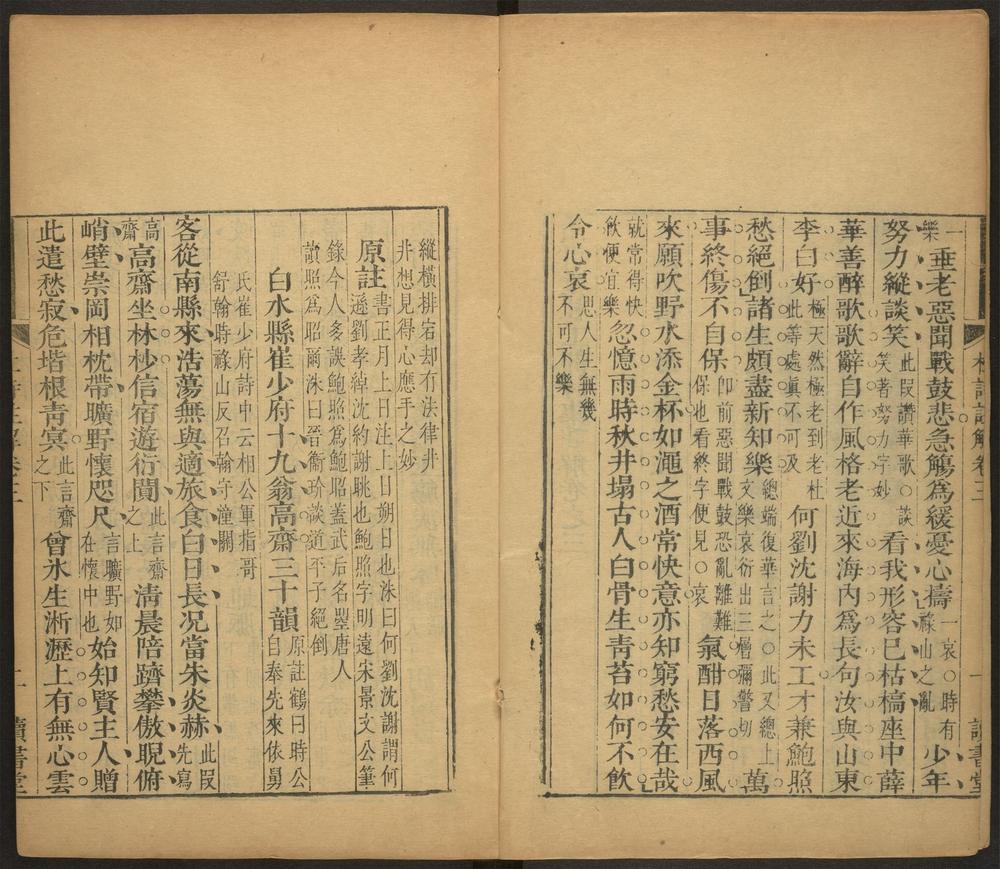 一樂垂老惡聞戰鼓悲急觴爲緩憂心擣一哀○時有祿山之亂少年
努力縱談笑此叚讚華歌○談笑者努力字妙看我形容已枯槁座中薛
華善醉歌歌辭自作風格老近來海內爲長句汝與山東
李白好極天然極老到老杜此等處眞不可及何劉沈謝力未工才兼鮑照
愁絕倒諸生頗盡新知樂總端復華言之○此又總上文樂哀衍出三層彌警切萬
事終傷不自保卽前惡聞戰鼓恐亂離難保也看終字便見○哀氣酣日落西風
來願吹野水添金杯如澠之酒常快意亦知窮愁安在哉
就常得快飲便宜樂忽憶雨時秋井塌古人白骨生靑苔如何不飮
令心哀思人生無幾不可不樂
杜詩註解卷三
一
讀書堂
縱橫排宕却有法律井井想見得心應手之妙
原註書正月上日注上日朔日也洙曰何劉沈謝謂何遜劉孝綽沈約謝朓也鮑照字明遠宋景文公筆
錄今人多誤鮑照爲鮑昭蓋武后名曌唐人諱照爲昭爾洙曰晉衞玠談道平子絕倒
白水縣崔少府十九翁高齋三十韻原註鶴曰時公自奉先來依舅
氏崔少府詩中云相公軍指哥舒翰時祿山反召翰守潼關
客從南縣來浩蕩無與適旅食白日長況當朱炎赫此叚先寫
高齋高齋坐林杪信宿遊衍闃此言齋之上淸晨陪躋攀傲睨俯
峭壁崇岡相枕帶曠野懷咫尺言曠野如在懷中也始知賢主人贈
此遣愁寂危堦根靑冥此言齋之下曾冰生淅瀝上有無心雲
二
讀書堂